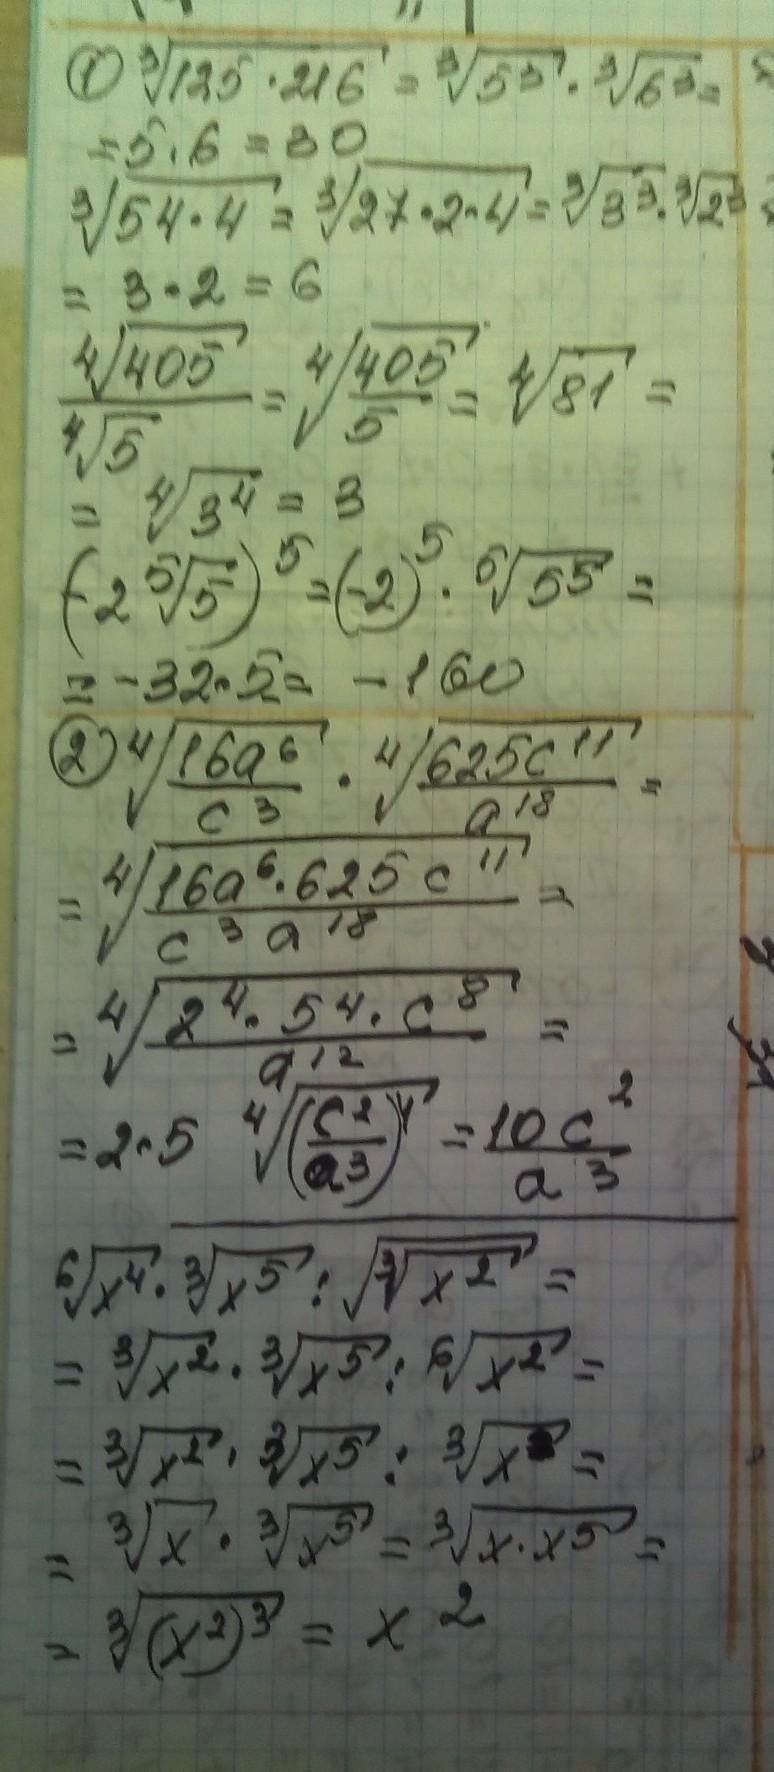 ① ∛(125·216) = ∛5³ · ∛6³ =
= 5·6 = 30
∛(54·4) = ∛(27·2·4) = ∛3³ · ∛2³
= 3·2 = 6
⁴√405 / ⁴√5 = ⁴√(405/5) = ⁴√81 =
= ⁴√3⁴ = 3
(-2 ⁵√5)⁵ = (-2)⁵ · ⁵√5⁵ =
= -32·5 = -160
② ⁴√(16a⁶/c³) · ⁴√(625c¹¹/a¹⁸) =
= ⁴√(16a⁶·625c¹¹/c³a¹⁸) =
= ⁴√(2⁴·5⁴·c⁸/a¹²) =
= 2·5 ⁴√((c²/a³)⁴) = 10c²/a³
⁶√x⁴ · ∛x⁵ : √(∛x²) =
= ∛x² · ∛x⁵ : ⁶√x² =
= ∛x² · ∛x⁵ : ∛x =
= ∛x · ∛x⁵ = ∛(x·x⁵) =
= ∛((x²)³) = x²